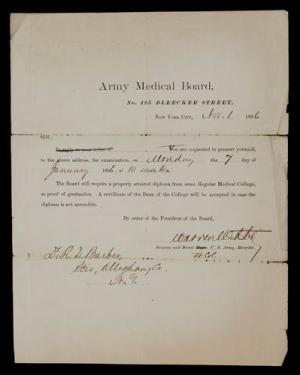 Army Medical Board,
No. 125 BLEECKER STREET,
NEW YORK CITY, Nov. 1 1866
SIR:
In reply to your letter of You are requested to present yourself,
to the above address, for examination, on Monday the 7 day of
January 186 10
The Board will require a properly attested diploma from some Regular Medical College,
as proof of graduation. A certificate of the Dean of the College will be accepted in case the
diploma is not accessible.
By order of the President of the Board,
Warren Webster
Surgeon and Brevet U. S. Army, Recorder.
Lt Col
Dr. R. D. Barber
Alleghany Co.
N. Y.